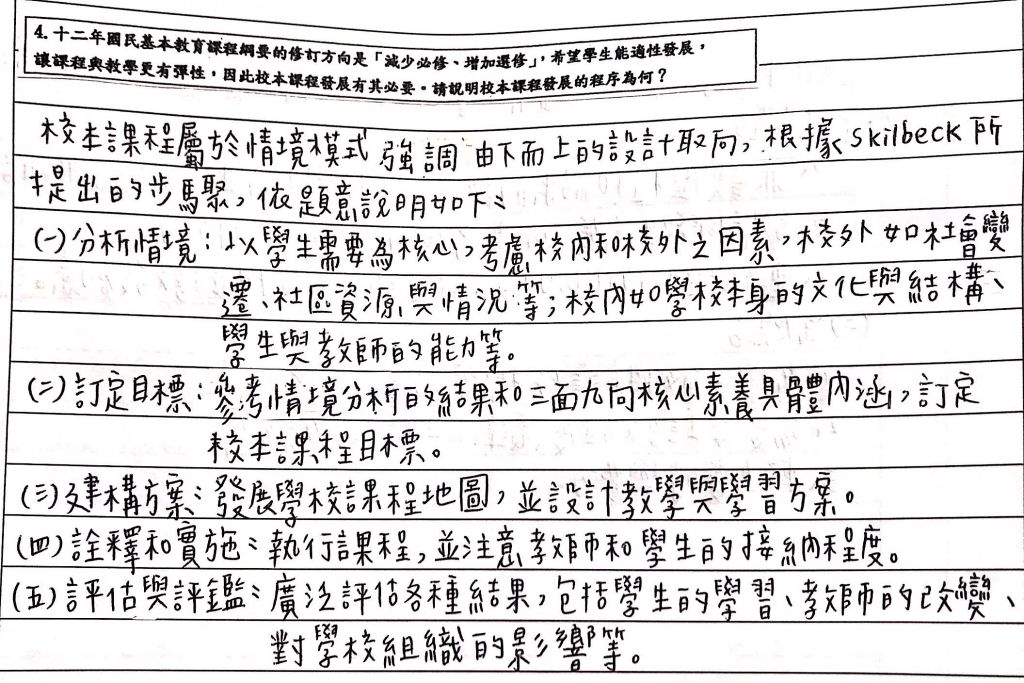 4.十二年國民基本教育課程綱要的修訂方向是「減少必修、增加選修」，希望學生能適性發展，
讓課程與教學更有彈性，因此校本課程發展有其必要。請說明校本課程發展的程序為何？
校本課程屬於情境模式 強調 由下而上的設計取向，根據skilbeck所
提出的步驟，依題意說明如下：
(一)分析情境：以學生需要為核心，考慮校內和校外之因素，校外如社會變
遷、社區資源與情況等；校內如學校本身的文化與結構、
學生與教師的能力等。
(二)訂定目標：參考情境分析的結果和三面九向核心素養具體內涵，訂定
校本課程目標。
(三)建構方案：發展學校課程地圖，並設計教學與學習方案。
(四)詮釋和實施：執行課程，並注意教師和學生的接納程度。
(五)評估與評鑑：廣泛評估各種結果，包括學生的學習、教師的改變、
對學校組織的影響等。